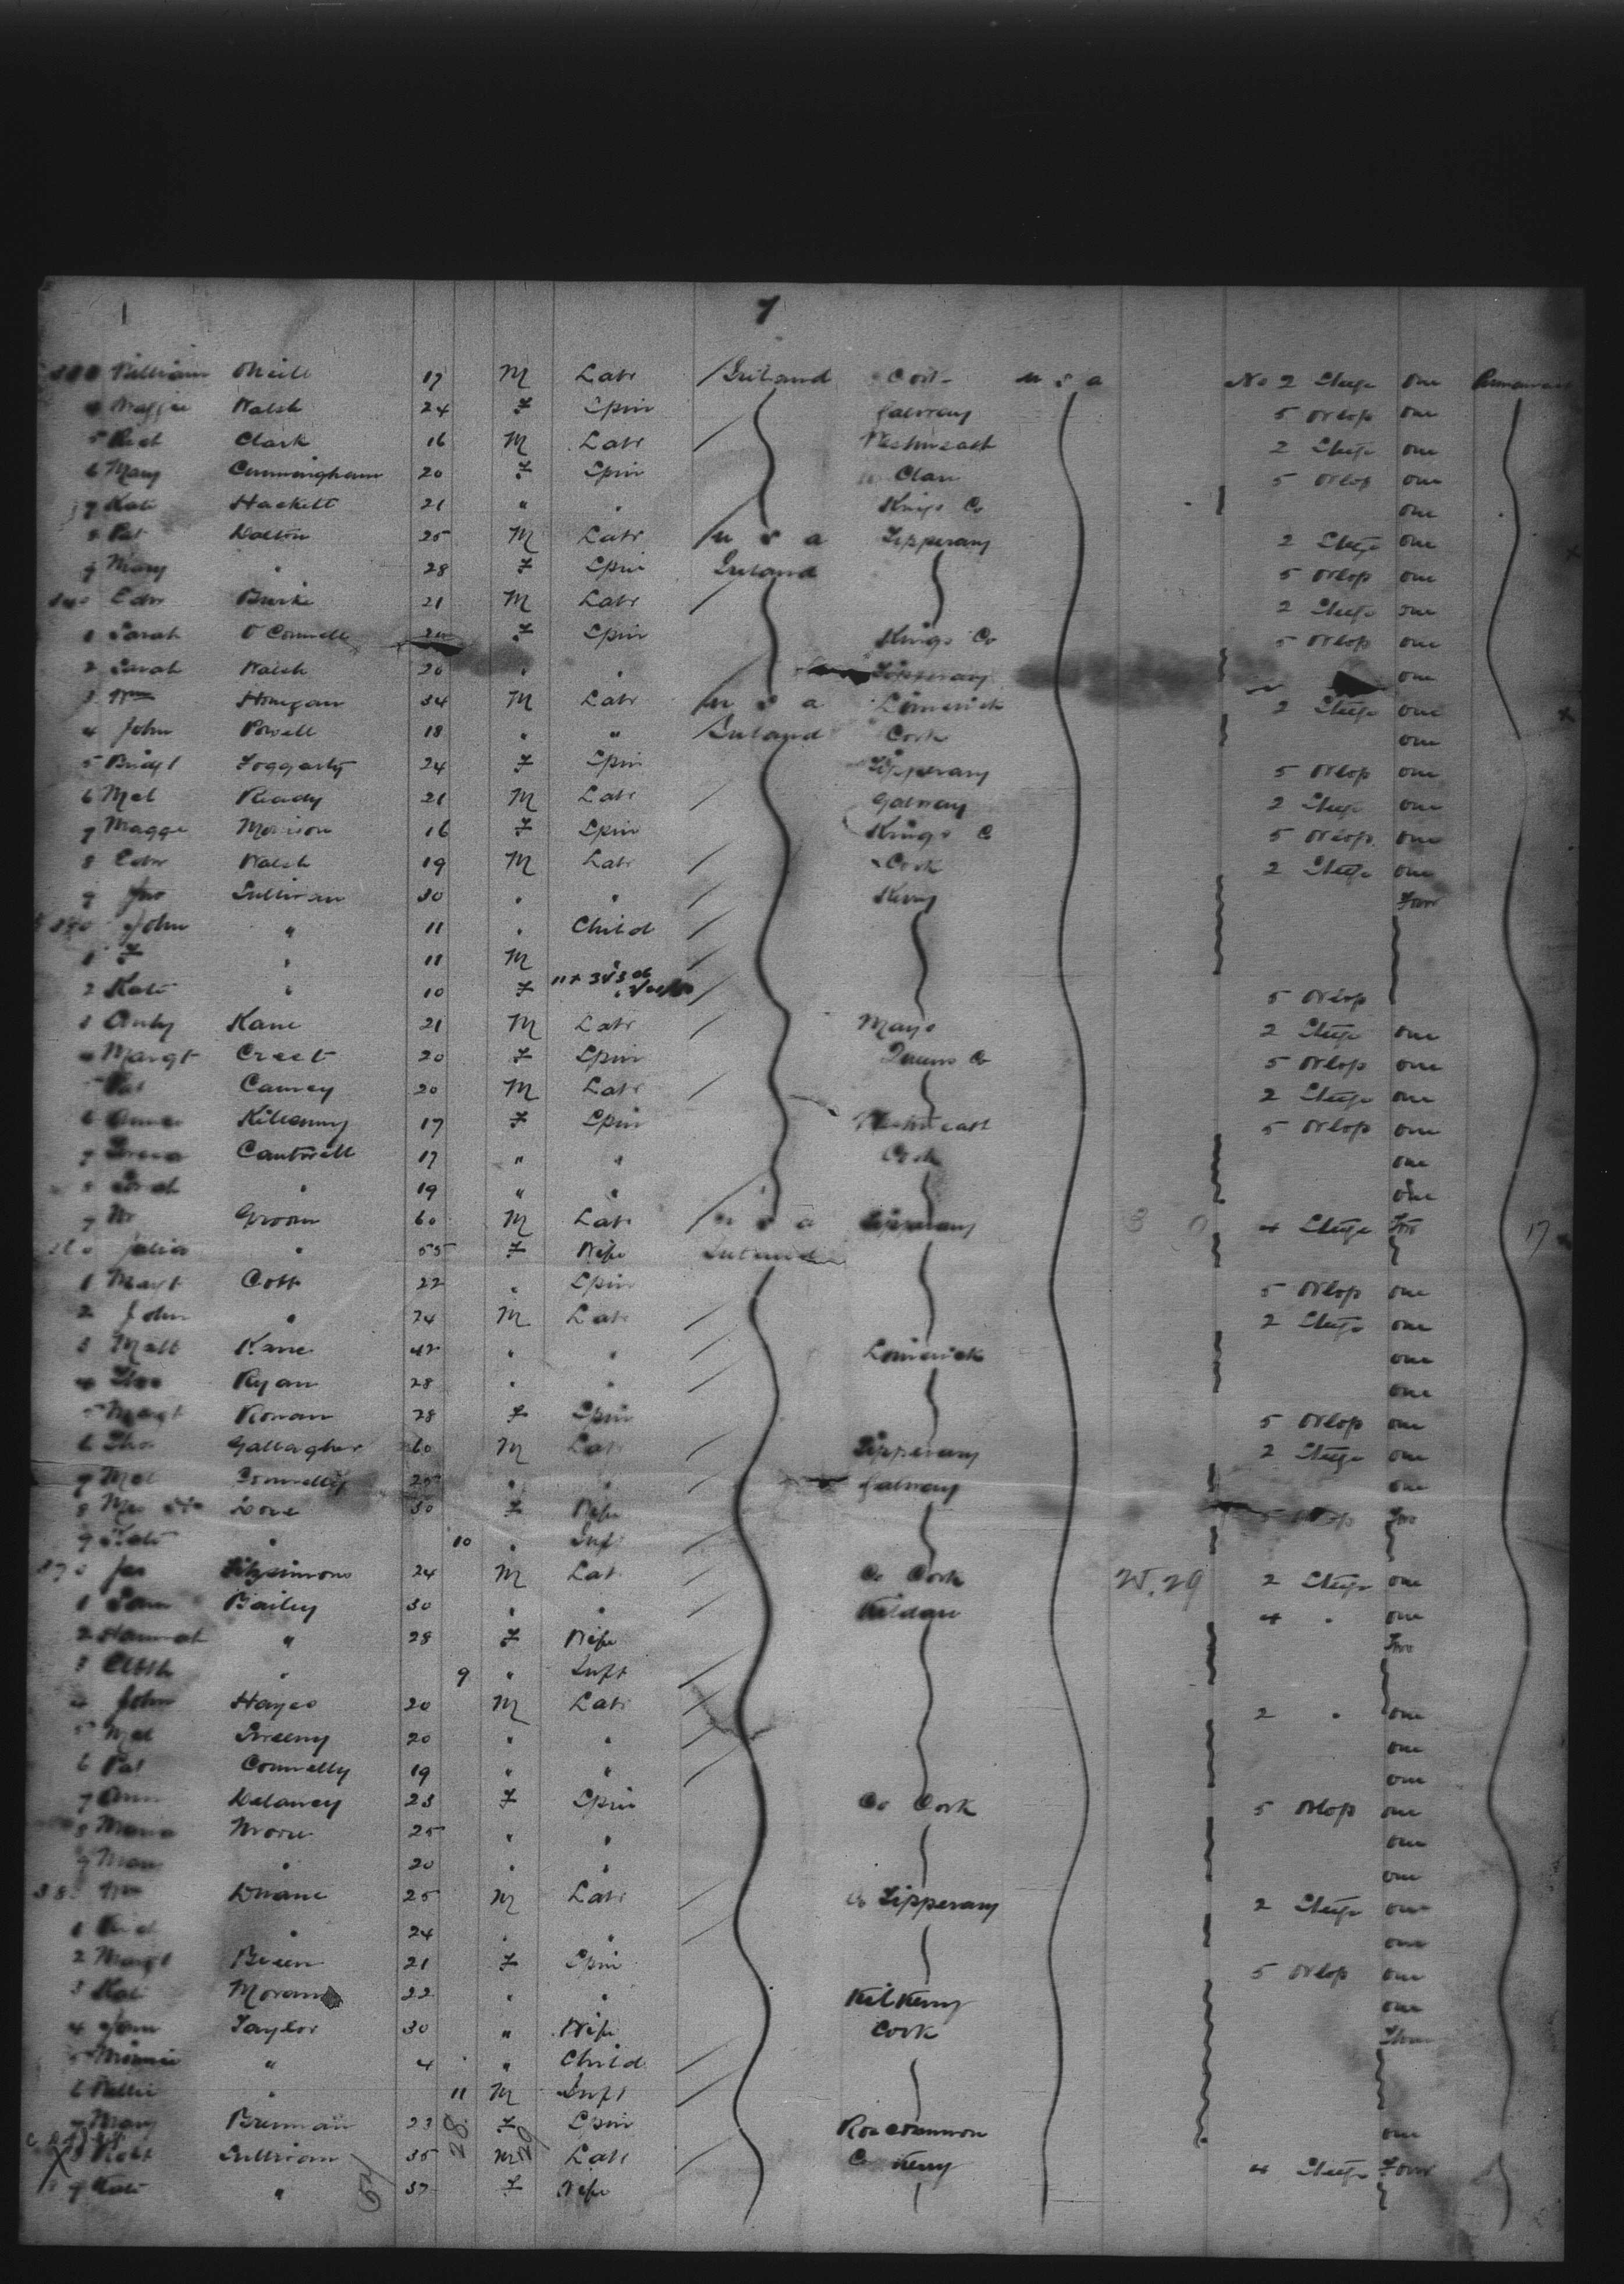 7
William ONeill 17 M Labr Ireland Cork U S A No 2 Steege one Permanent
4 Maggie Walsh 24 F Spin Galway 5 Orlop one
5 Rich Clark 16 M Labr Westmeath 2 Steege one
6 Mary Cunningham 20 F Spin Clare 5 Orlop one
7 Kate Hackett 21 " " Kings Co one
8 Pat Dalton 25 M Labr U S A Tipperary 2 Steege one
9 Mary " 28 F Spin Ireland 5 Orlop one
Edw Burke 21 M Labr 2 Steege one
1 Sarah O'Connell F Spin Kings Co 5 Orlop one
2 Sarah Walsh 20 " " Tipperary one
3 Wm Hourgan 34 M Labr U S A Limerick 2 Steege one
4 John Powell 18 " " Ireland Cork one
5 Bridgt Foggarty 24 F Spin Tipperary 5 Orlop one
6 Mcl Ready 21 M Labr Galway 2 Steege one
7 Maggie Morrison 16 F Spin Kings C 5 Orlop one
8 Edw Walsh 19 M Labr Cork 2 Steege one
9 Jno Sullivan 30 " " Kerry Four
John " 11 " Child
1 F " 11 M "
2 Kate " 10 F 5 Orlop
3 Andy Kane 21 M Labr Mayo 2 Steege one
4 Margt Creet 20 F Spin Queens Co 5 Orlop one
5 Pat Canney 20 M Labr 2 Steege one
6 Annie Killenny 17 F Spin Westmeath 5 Orlop one
7 Cantwell 17 " " Cork one
8 " 19 " " one
Groom 60 M Labr U S A Tipperary 3 0 4 Steege Two 17
Julia " 55 F Wife Ireland
1 Margt Cott 22 " Spin 5 Orlop one
2 John " 24 M Labr 2 Steege one
3 Matt Kane 42 " " Limerick one
4 Thos Ryan 28 " " one
5 Margt Ronan 28 F Spin 5 Orlop one
6 Tho Gallagher 60 M Labr Tipperary 2 Steege one
7 Mcl Connelly 25 " " Galway one
8 Mrs Dove 30 F Wife 5 Orlop Two
9 Kate " 10 " Inft
Jas Fitzsimons 24 M Lab Co Cork W.29 2 Steege one
1 Sam Bailey 30 " " Kildare 4 " one
2 Hannah " 28 F Wife Two
3 Elbth " 9 " Inft
4 John Hayes 20 M Labr 2 " one
5 Mcl Sweeny 20 " " one
6 Pat Connelly 19 " " one
7 Ann Delaney 23 F Spin Co Cork 5 Orlop one
8 Maria Moore 25 " " one
9 Mary " 20 " " one
Wm Duane 25 M Labr Co Tipperary 2 Steege one
1 " 24 " " one
2 Margt Breen 21 F Spin 5 Orlop one
3 Kate Moran 22 " " Kilkenny one
4 Jane Taylor 30 " Wife Cork Three
5 Minnie " 4 " Child
6 Willie " 11 M Inft
7 Mary Brennan 23 F Spin Roscommon one
8 Robt Sullivan 35 M Labr C Kerry 4 Steege Four
9 Kate " 37 F Wife